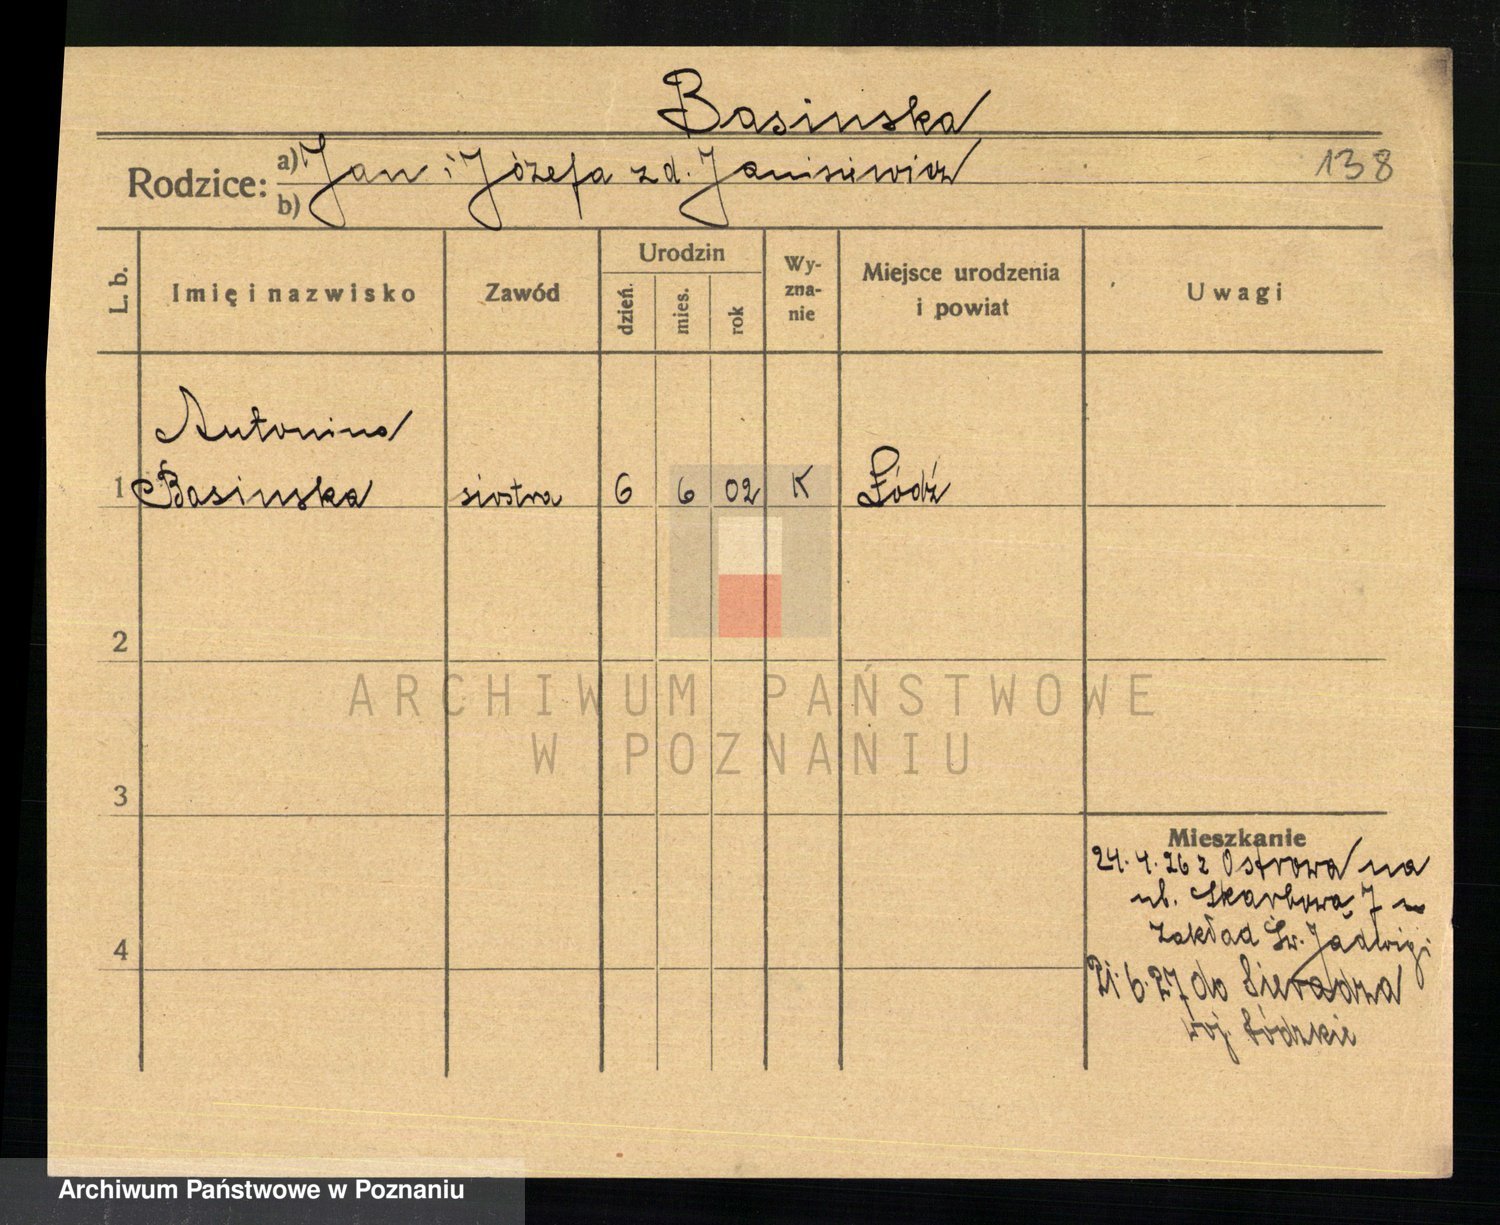 Basinska
Rodzice: a) Jan i Józefa z d. Janisiewicz
b)
138
L. b.
Imię i nazwisko
Zawód
Urodzin
dzień.
mies.
rok
Wy-
zna-
nie
Miejsce urodzenia
i powiat
Uwagi
Antonina
1 Basinska siostra 6 6 02 K Łódź
2
ARCHIWUM PAŃSTWOWE
W POZNANIU
3
Mieszkanie
24.4.26 z Ostrowa na
ul. Skarbowa 7
zakład Św. Jadwigi
4
21.6.27 do Sieradza
woj. Łódzkie
Archiwum Państwowe w Poznaniu